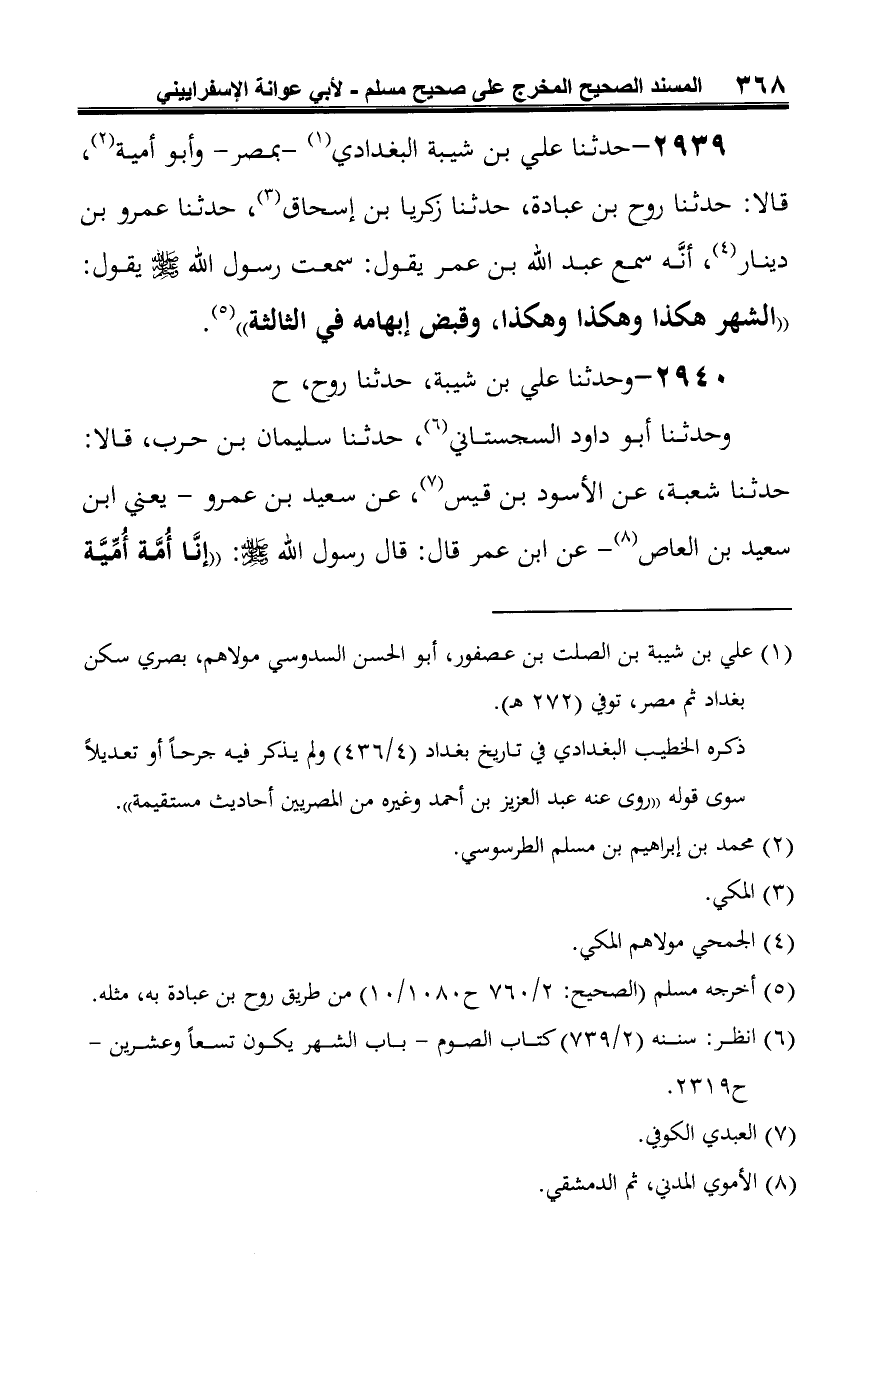 ٣٦٨ المسند الصحيح المخرج على صحيح مسلم - لأبي عوانة الإسفراييني
٢٩٣٩-حدثنا علي بن شيبة البغدادي(١) -بمصر- وأبو أمية(٢)،
قالا: حدثنا روح بن عبادة، حدثنا زكريا بن إسحاق(٣)، حدثنا عمرو بن
دينار(٤)، أنَّه سمع عبد الله بن عمر يقول: سمعت رسول الله ﷺ يقول:
((الشهر هكذا وهكذا وهكذا، وقبض إبهامه في الثالثة))(٥).
٢٩٤٠-وحدثنا علي بن شيبة، حدثنا روح، ح
وحدثنا أبو داود السجستاني(٦)، حدثنا سليمان بن حرب، قالا:
حدثنا شعبة، عن الأسود بن قيس(٧)، عن سعيد بن عمرو - يعني ابن
سعيد بن العاص(٨)- عن ابن عمر قال: قال رسول الله ﷺ: ((إنَّا أُمَّة أُمِّيَّة
(١) علي بن شيبة بن الصلت بن عصفور، أبو الحسن السدوسي مولاهم، بصري سكن
بغداد ثم مصر، توفي (٢٧٢ هـ).
ذكره الخطيب البغدادي في تاريخ بغداد (٤٣٦/٤) ولم يذكر فيه جرحاً أو تعديلاً
سوى قوله ((روى عنه عبد العزيز بن أحمد وغيره من المصريين أحاديث مستقيمة)).
(٢) محمد بن إبراهيم بن مسلم الطرسوسي.
(٣) المكي.
(٤) الجمحي مولاهم المكي.
(٥) أخرجه مسلم (الصحيح: ٧٦٠/٢ ح١٠/١٠٨٠) من طريق روح بن عبادة به، مثله.
(٦) انظر: سننه (٧٣٩/٢) كتاب الصوم - باب الشهر يكون تسعاً وعشرين -
ح٢٣١٩.
(٧) العبدي الكوفي.
(٨) الأموي المدني، ثم الدمشقي.